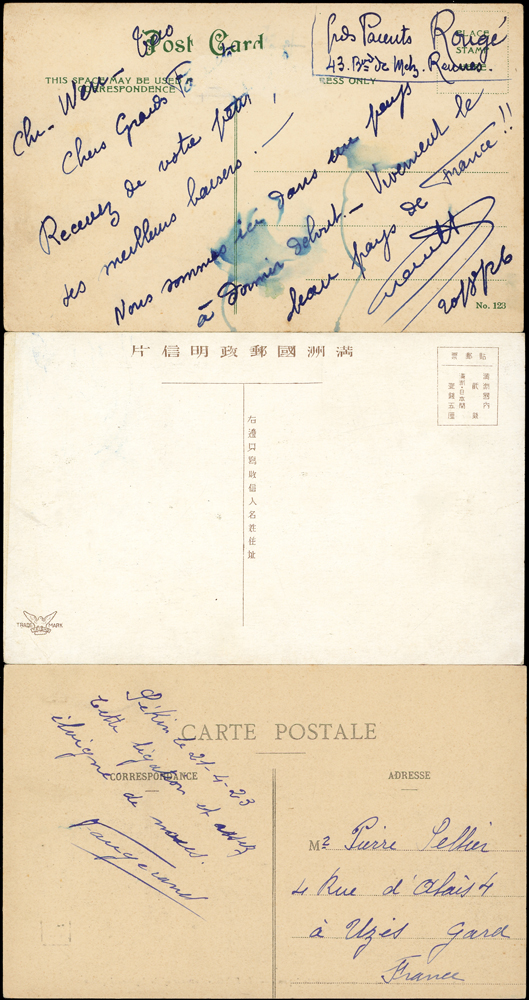 Post Card
THIS SPACE MAY BE USED
CORRESPONDENCE
RESS ONLY
PLACE
STAMP
Parents Rougé
43. Bd de Metz. Rennes.
Chers Grands
Recevez de votre petit
des meilleurs baisers. —
Nous sommes ici dans un pays
à dormir debout. — Vivement le
beau pays de France!!
No. 123
満洲國郵政明信片
點郵票
滿洲國內
右邊只寫收信人名姓住址
TRADE MARK
CARTE POSTALE
CORRESPONDANCE
ADRESSE
Pékin le 21-4-23
Cette légation est assez
éloignée de nous.
Mr Pierre Pellier
4 Rue d'Alais 4
à Uzès Gard
France